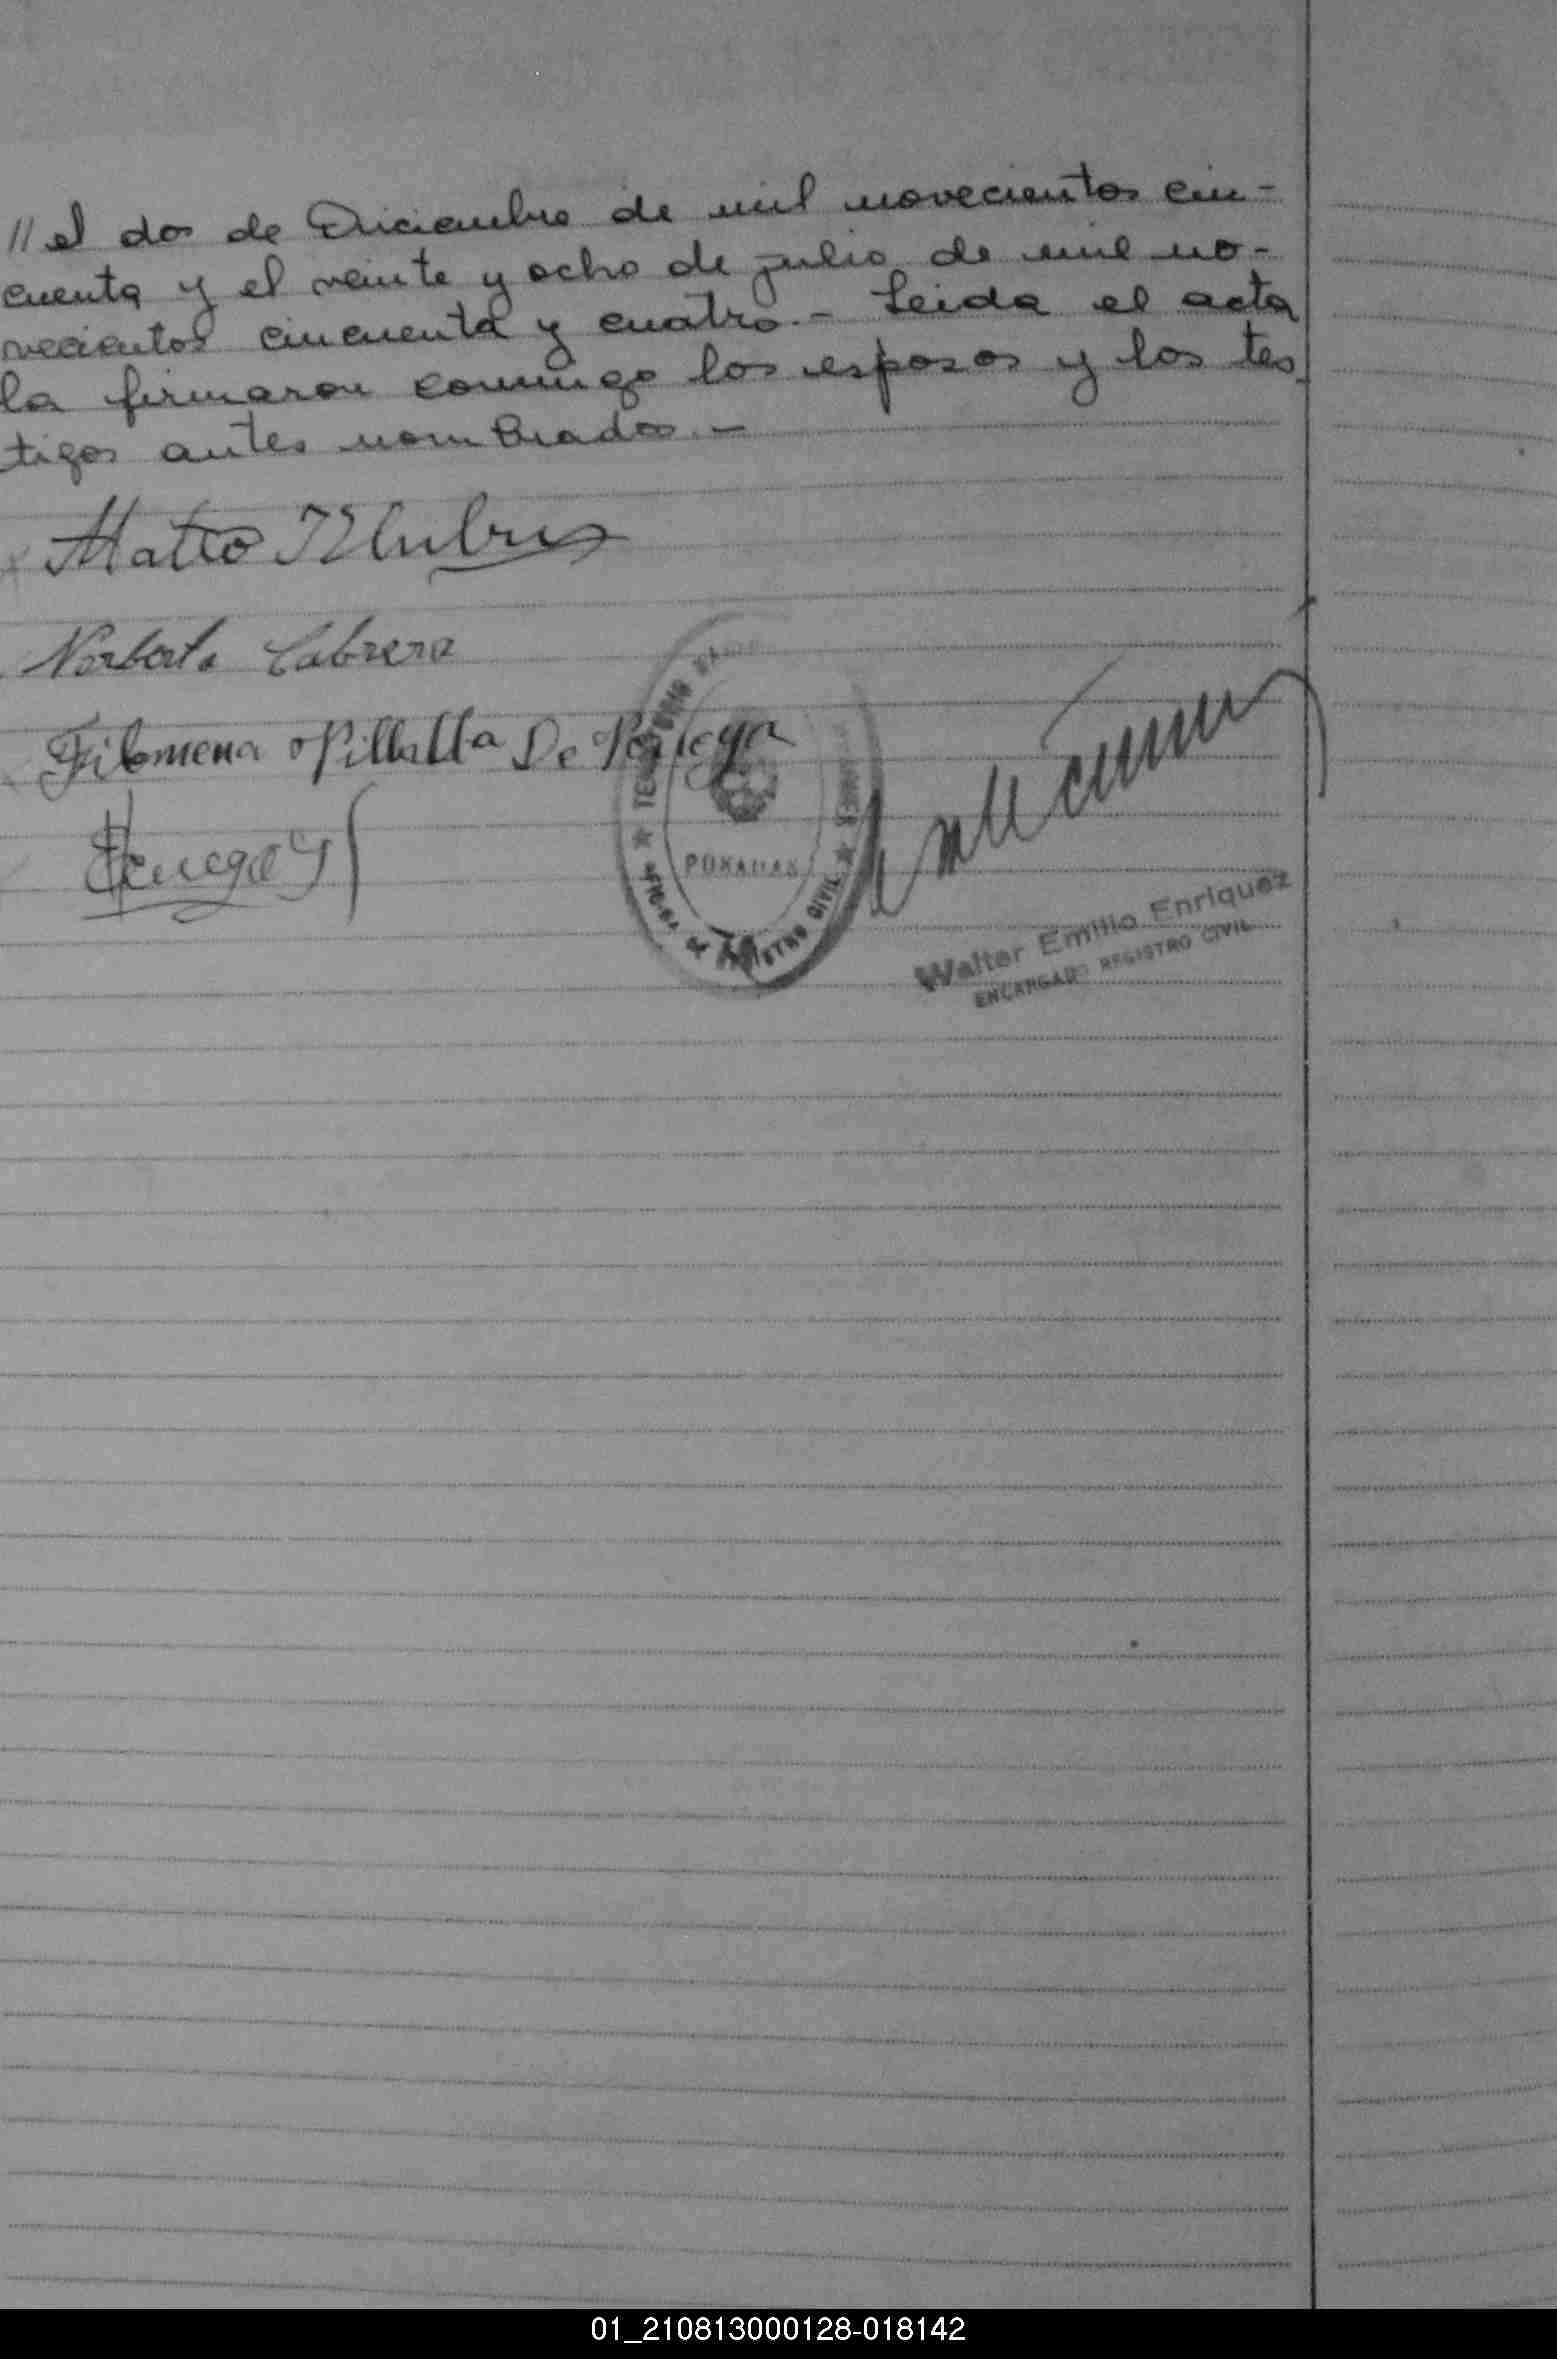 // el dos de Diciembre de mil novecientos cin-
cuenta y el veinte y ocho de julio de mil no-
vecientos cincuenta y cuatro.- Leida el acta
la firmaron conmigo los esposos y los tes
tigos antes nombrados.-
Mateo
Norberto Cabrera
Filomena Villalla De
POSADAS
REGISTRO CIVIL
Walter Emilio Enriquez
ENCARGADO REGISTRO CIVIL
01_210813000128-018142